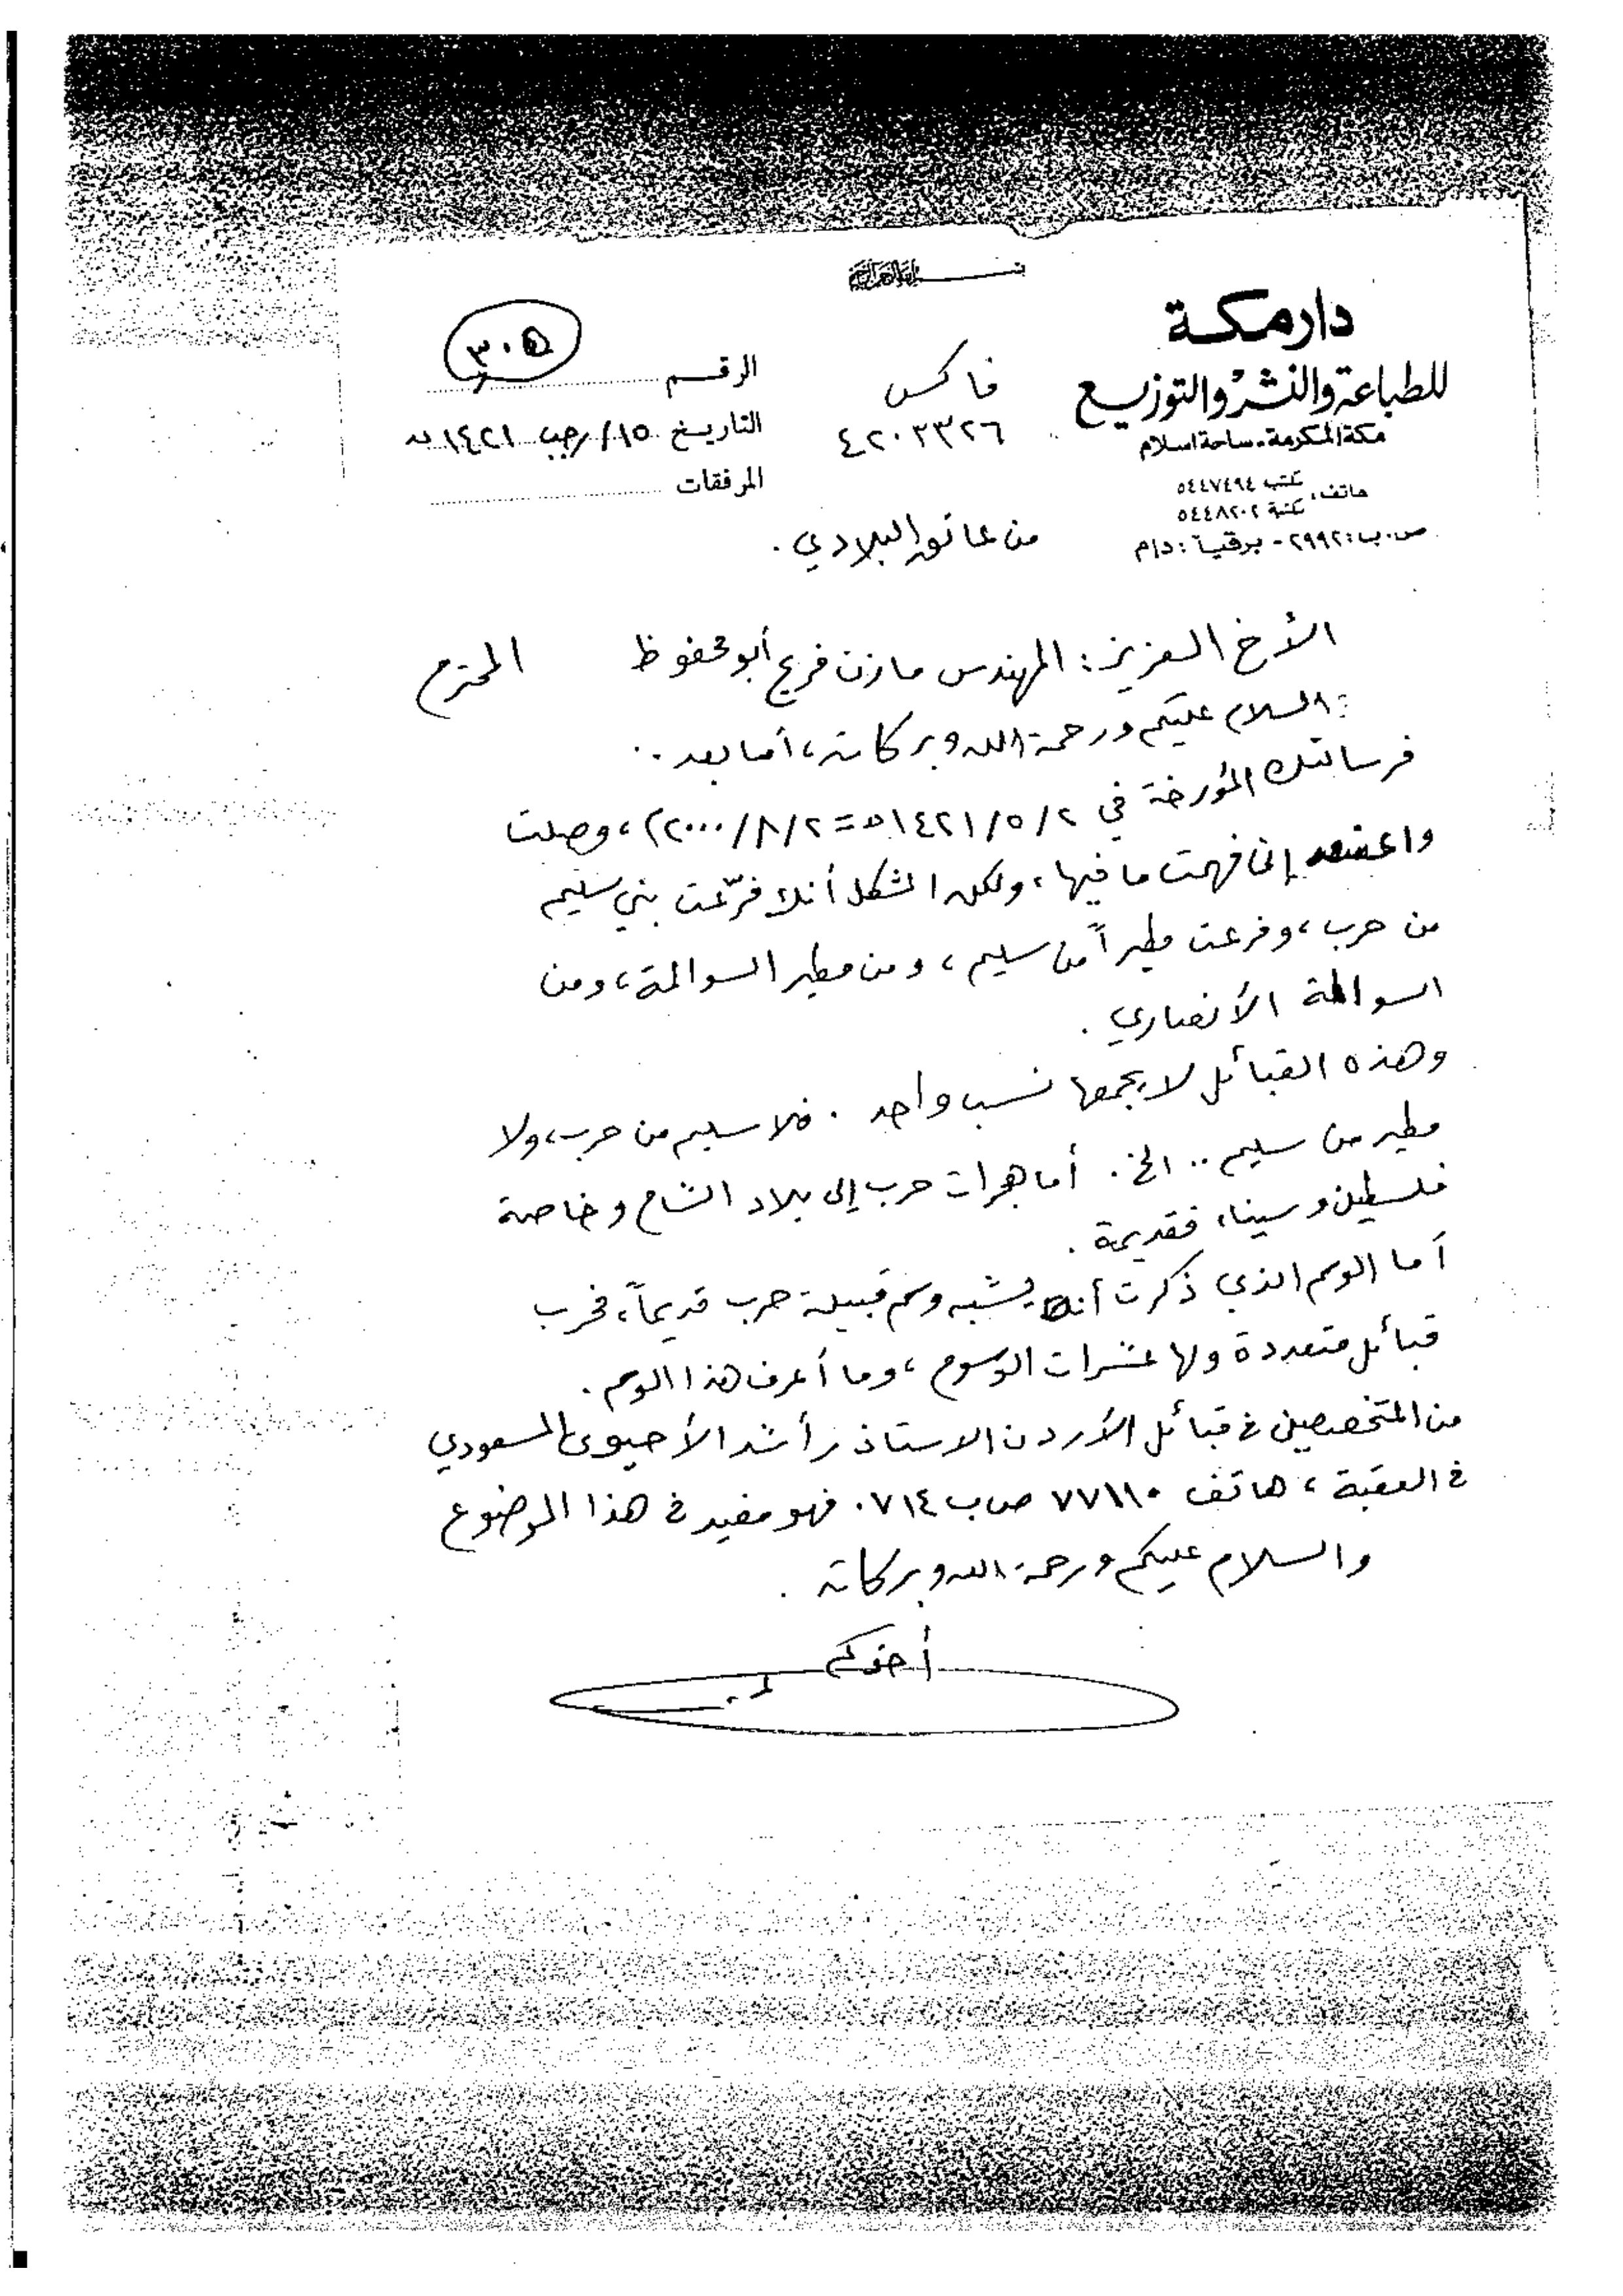 بسم الله الرحمن الرحيم
دار مكة
للطباعة والنشر والتوزيع
مكة المكرمة - ساحة اسلام
هاتف: مكتب ٥٤٤٧٤٩٤
مكتبة ٥٤٤٨٢٠٢
ص.ب: ٢٩٩٢ - برقياً: دام
فاكس
٤٢٠٣٣٢٦
الرقم ٣٠٥
التاريخ ١٥/رجب ١٤٢١هـ
المرفقات
من عاتق البلادي.
الأخ العزيز: المهندس مازن فريج أبو محفوظ المحترم
السلام عليكم ورحمة الله وبركاته، أما بعد..
فرسالتك المؤرخة في ١٤٢١/٥/٢هـ = ٢٠٠٠/٨/٢)، وصلت
واعتقد إني فهمت ما فيها، ولكن المشكل أنك فرّعت بني سليم
من حرب، وفرعت مطيراً من سليم، ومن مطير السوالمة، ومن
السوالمة الأنصاري.
وهذه القبائل لا يجمعها نسب واحد. فلا سليم من حرب، ولا
مطير من سليم.. الخ. أما هجرات حرب إلى بلاد الشام وخاصة
فلسطين وسيناء فقديمة.
أما الوسم الذي ذكرت أنه يشبه وسم قبيلة حرب قديماً، فحرب
قبائل متعددة ولها عشرات الوسوم، وما أعرف هذا الوسم.
من المتخصصين في قبائل الأردن الاستاذ راشد الأحيوي المسعودي
في العقبة، هاتف ٧٧١١٠ ص ب ٧١٤. فهو مفيد في هذا الموضوع
والسلام عليكم ورحمة الله وبركاته.
أخوكم